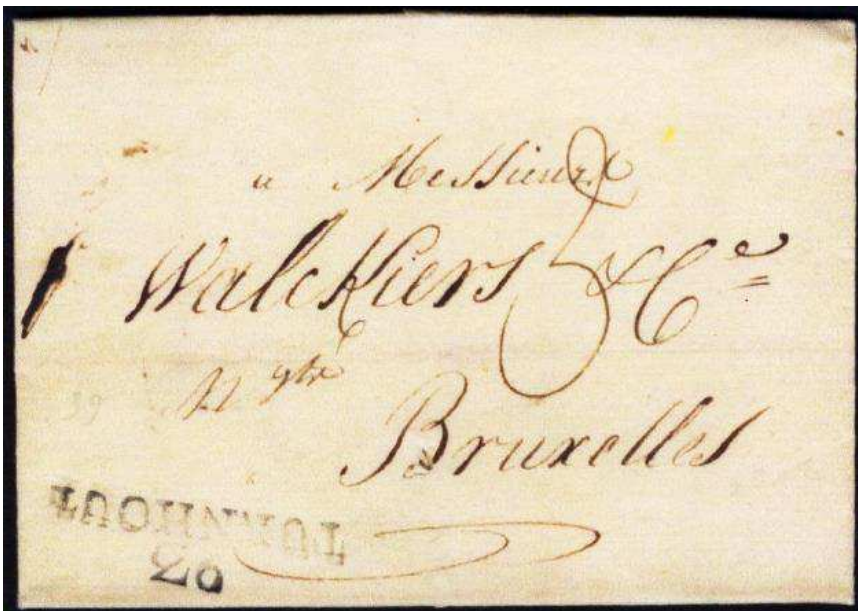 a Messieurs
Walckiers & Cie
Bruxelles
TURNHOUT